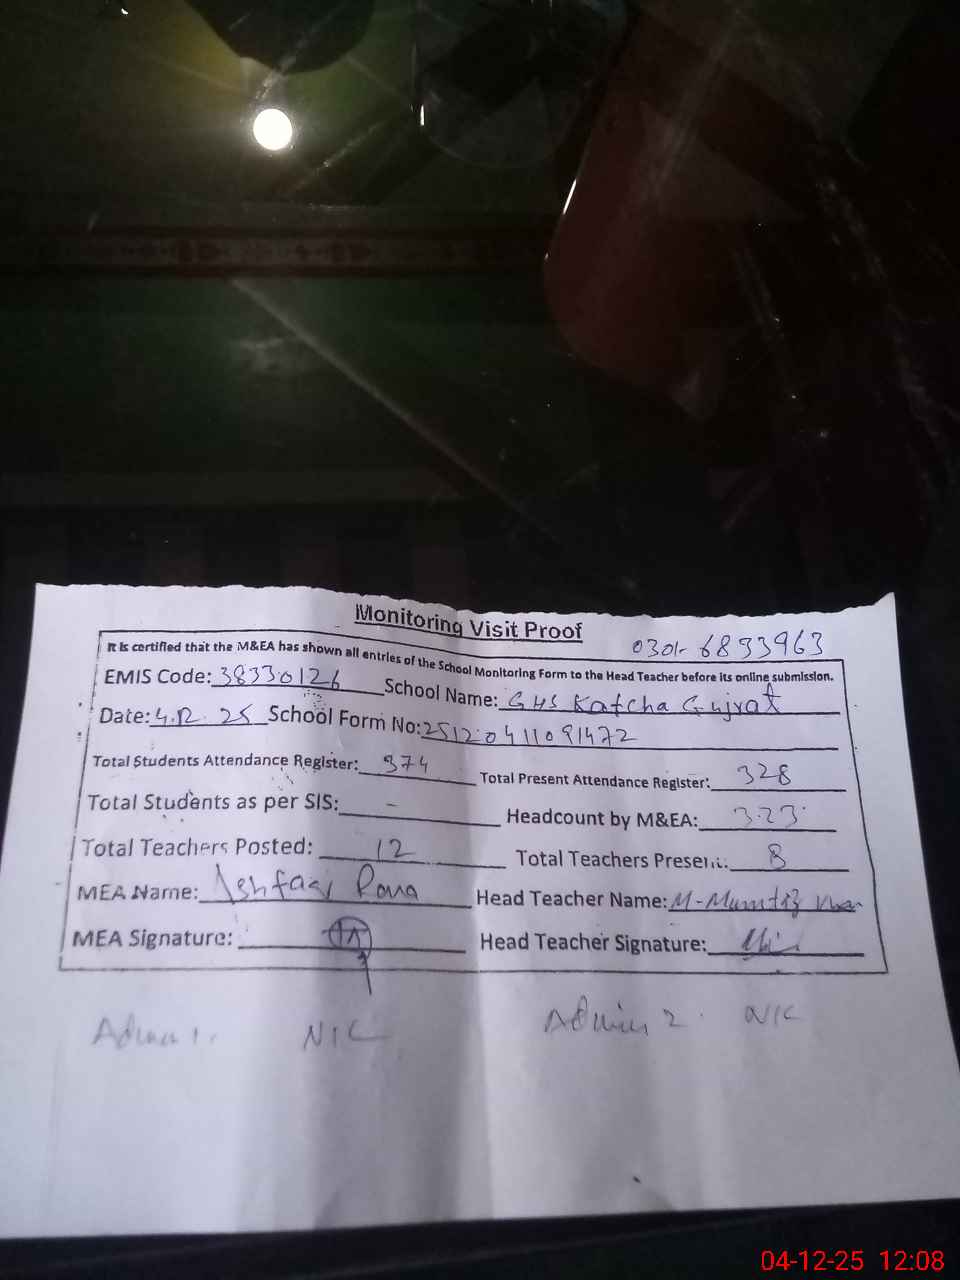 Monitoring Visit Proof
0301-6833963
It is certified that the M&EA has shown all entries of the School Monitoring Form to the Head Teacher before its online submission.
EMIS Code: 38330126 School Name: GHS Katcha Gujrat
Date: 4.12.25 School Form No: 2512041109 1472
Total Students Attendance Register: 374 Total Present Attendance Register: 328
Total Students as per SIS: - Headcount by M&EA: 323
Total Teachers Posted: 12 Total Teachers Present: 8
MEA Name: Ashfaq Rana Head Teacher Name: M-Mumtaz Khan
MEA Signature: Head Teacher Signature:
Admin 1. NIC Admin 2. NIC
04-12-25 12:08